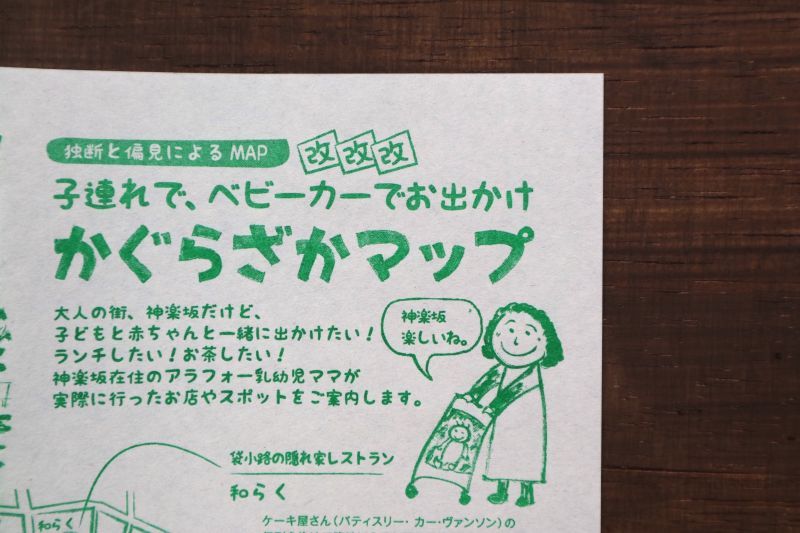 独断と偏見によるMAP 改 改 改
子連れで、ベビーカーでお出かけ
かぐらざかマップ
大人の街、神楽坂だけど、
子どもと赤ちゃんと一緒に出かけたい！
ランチしたい！お茶したい！
神楽坂在住のアラフォー乳幼児ママが
実際に行ったお店やスポットをご案内します。
神楽坂
楽しいね。
袋小路の隠れ家レストラン
和らく
和らく
ケーキ屋さん（パティスリー・カー・ヴァンソン）の